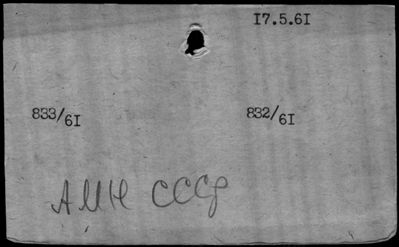 I7.5.6I
833/6I 832/6I
АМН СССР